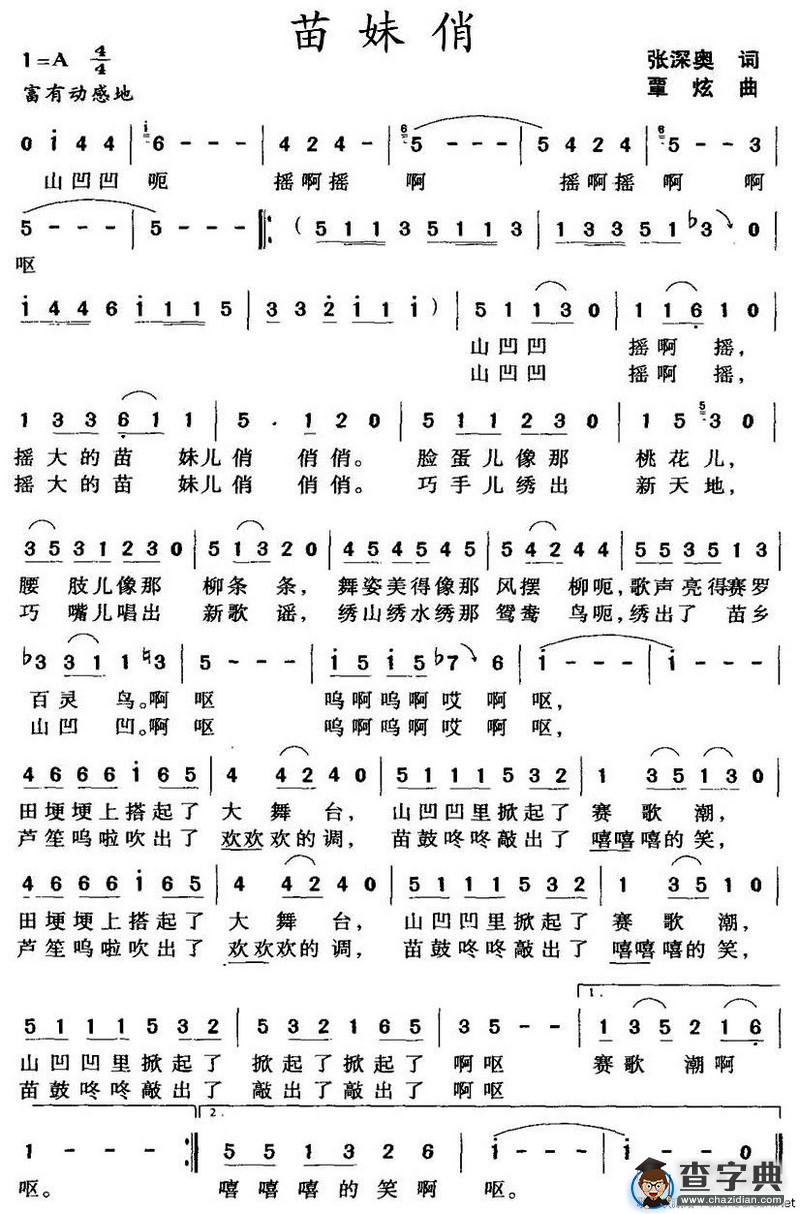 苗妹俏
1=A 4/4
张深奥 词
富有动感地
覃炫 曲
0 i 4 4 | 6 - - - | 4 2 4 - | 5 - - - | 5 4 2 4 | 5 - - 3 |
山凹凹 呃 摇啊摇 啊 摇啊摇 啊 啊
5 - - - | 5 - - - |: ( 5 1 1 3 5 1 1 3 | 1 3 3 3 5 1 ♭3 0 |
呕
i 4 4 6 i 1 1 5 | 3 3 2 i 1 i ) | 5 1 1 3 0 | 1 1 6 1 0 |
山凹凹 摇啊摇,
山凹凹 摇啊摇,
1 3 3 6 1 1 | 5 . 1 2 0 | 5 1 1 1 2 3 0 | 1 5 3 0 |
摇大的苗 妹儿俏 俏俏。 脸蛋儿像那 桃花儿,
摇大的苗 妹儿俏 俏俏。 巧手儿绣出 新天地,
3 5 3 1 2 3 0 | 5 1 3 2 0 | 4 5 4 5 4 5 | 5 4 2 4 4 | 5 5 3 5 1 3
腰 肢儿像那 柳条 条, 舞姿美得像那 风摆 柳呃,歌声亮得赛罗
巧 嘴儿唱出 新歌 谣, 绣山绣水绣那 鸳鸯 鸟呃,绣出了 苗乡
♭3 3 1 1 ♮3 | 5 - - - | i 5 i 5 ♭7 6 | i - - | i - - - |
百灵 鸟。啊 呕 呜啊呜啊哎啊 呕,
山凹 凹。啊 呕 呜啊呜啊哎啊 呕,
4 6 6 6 i 6 5 | 4 4 2 4 0 | 5 1 1 1 5 3 2 | 1 3 5 1 3 0 |
田埂埂上搭起了 大 舞 台, 山凹凹里掀起了 赛歌 潮,
芦笙呜啦吹出了 欢欢欢的调, 苗鼓咚咚敲出了 嘻嘻嘻的笑,
4 6 6 6 i 6 5 | 4 4 2 4 0 | 5 1 1 1 5 3 2 | 1 3 5 1 0 |
田埂埂上搭起了 大 舞 台, 山凹凹里掀起了 赛歌 潮,
芦笙呜啦吹出了 欢欢欢的调, 苗鼓咚咚敲出了 嘻嘻嘻的笑,
1.
5 1 1 1 5 3 2 | 5 3 2 5 3 2 | 3 5 - - | 1 3 5 2 1 6 |
山凹凹里掀起了 掀起了掀起了 啊呕 赛歌 潮啊
苗鼓咚咚敲出了 敲出了敲出了 啊呕
2.
1 - - - :| 5 5 1 3 2 6 | i - - - | i - - - ‖
呕。 嘻嘻嘻的笑啊 呕。
查字典
www.chazidian.com